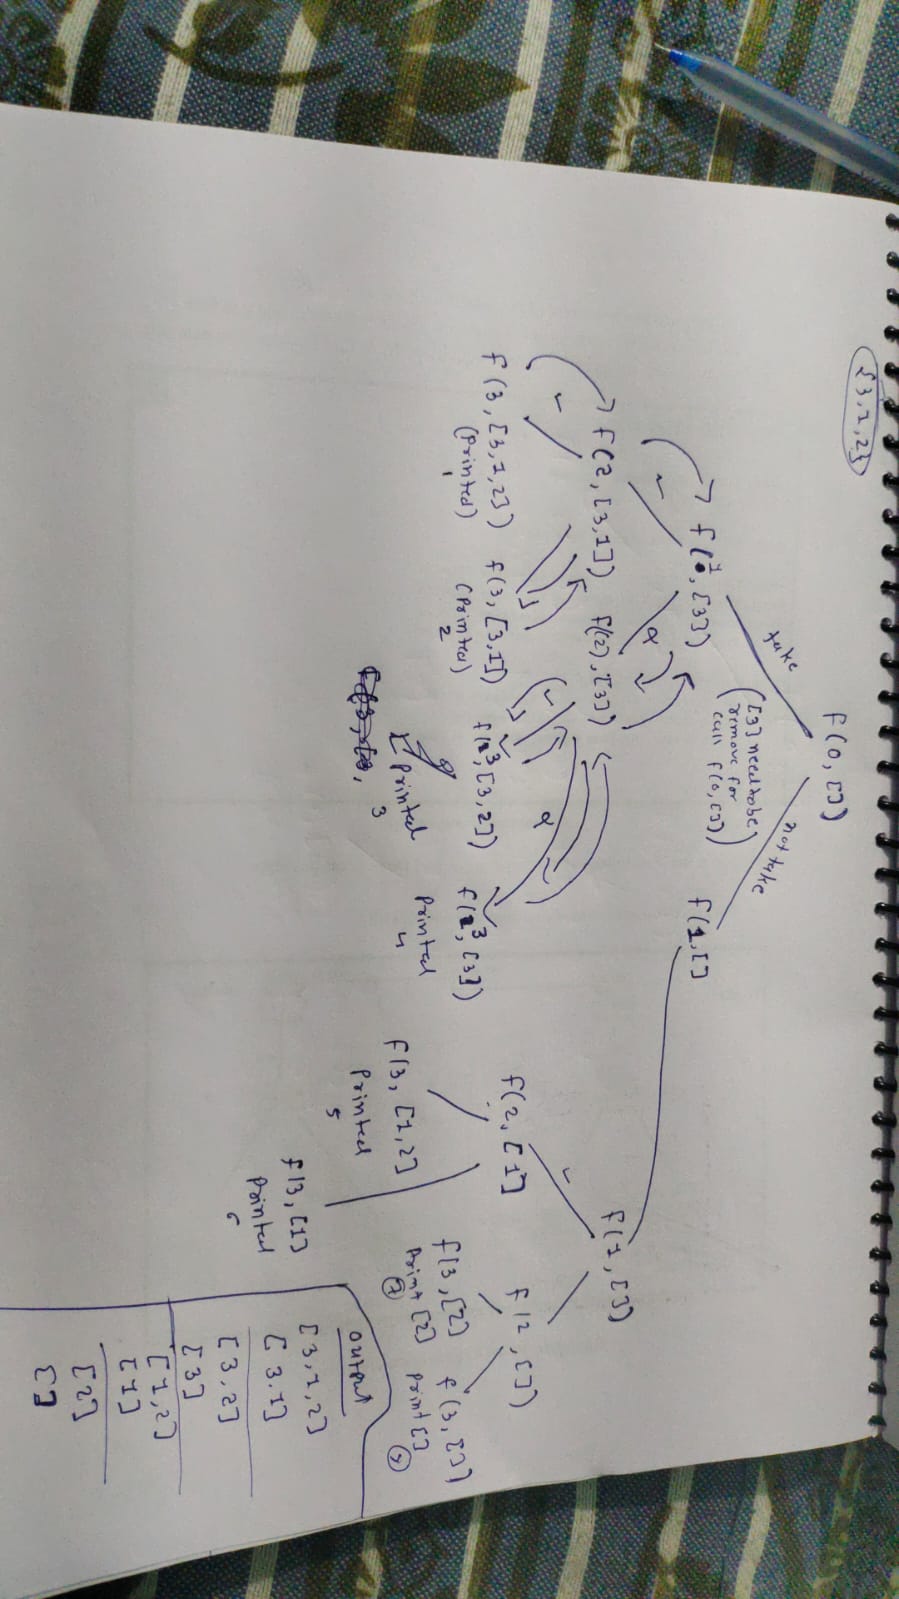 {3,1,2}
f(0, [])
take
not take
f(1, [3])
([3] need to be
remove for
call f(0, [])
f(1, []
f(2, [3,1])
f(2), [3])
f(1, [])
f(3, [3,1,2])
(Printed)
1
f(3, [3,1])
(Printed)
2
f(3, [3,2])
Printed
3
f(3, [3])
Printed
4
f(2, [1]
f(2, [])
f(3, [1,2]
Printed
5
f(3, [1]
Printed
6
f(3, [2]
Print [2]
7
f(3, [])
Print []
output
[3,1,2]
[3,1]
[3,2]
[3]
[1,2]
[1]
[2]
[]